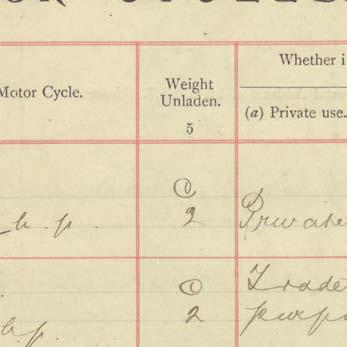 Motor Cycle.
Weight
Unladen.
5
Whether i
(a) Private use.
h.p.
2
Private
2
Trade
h.p.
purpo